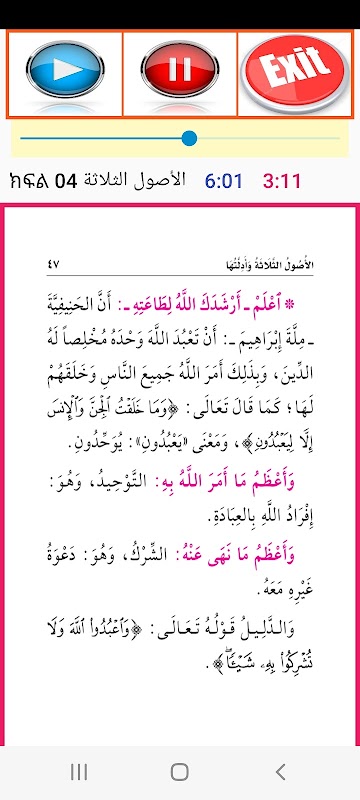 Exit
ክፍል 04 الأصول الثلاثة 6:01 3:11
الأُصُولُ الثَّلَاثَةُ وَأَدِلَّتُهَا ٤٧
* ٱعْلَمْ ـ أَرْشَدَكَ اللَّهُ لِطَاعَتِهِ ـ: أَنَّ الحَنِيفِيَّةَ
ـ مِلَّةَ إِبْرَاهِيمَ ـ: أَنْ تَعْبُدَ اللَّهَ وَحْدَهُ مُخْلِصاً لَهُ
الدِّينَ، وَبِذَلِكَ أَمَرَ اللَّهُ جَمِيعَ النَّاسِ وَخَلَقَهُمْ
لَهَا؛ كَمَا قَالَ تَعَالَى: ﴿وَمَا خَلَقْتُ ٱلْجِنَّ وَٱلْإِنسَ
إِلَّا لِيَعْبُدُونِ﴾، وَمَعْنَى «يَعْبُدُونِ»: يُوَحِّدُونِ.
وَأَعْظَمُ مَا أَمَرَ اللَّهُ بِهِ: التَّوْحِيدُ، وَهُوَ:
إِفْرَادُ اللَّهِ بِالعِبَادَةِ.
وَأَعْظَمُ مَا نَهَى عَنْهُ: الشِّرْكُ، وَهُوَ: دَعْوَةُ
غَيْرِهِ مَعَهُ.
وَالدَّلِيلُ قَوْلُهُ تَعَالَى: ﴿وَٱعْبُدُوا۟ ٱللَّهَ وَلَا
تُشْرِكُوا۟ بِهِۦ شَيْـًٔاۖ﴾.